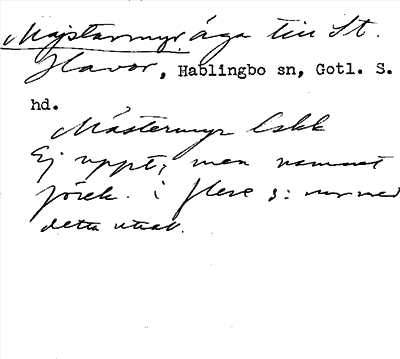 Majstarmyr, äga till St.
Havor, Hablingbo sn, Gotl. S.
hd.
Mästermyr Cskk
Ej uppt, men namnet
förek. i flera s:namned
detta uttal.